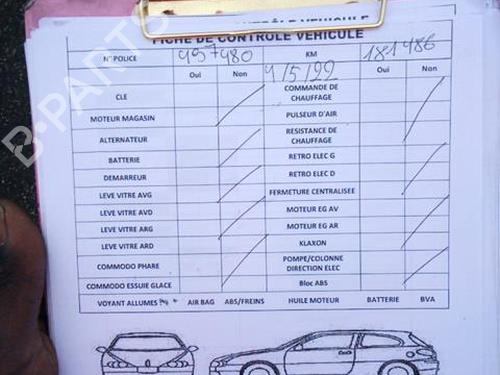 FICHE DE CONTRÔLE VEHICULE
N° POLICE 457480 KM 181486
Oui Non 4/5/22 Oui Non
CLE COMMANDE DE CHAUFFAGE
MOTEUR MAGASIN PULSEUR D'AIR
ALTERNATEUR RESISTANCE DE CHAUFFAGE
BATTERIE RETRO ELEC G
DEMARREUR RETRO ELEC D
LEVE VITRE AVG FERMETURE CENTRALISEE
LEVE VITRE AVD MOTEUR EG AV
LEVE VITRE ARG MOTEUR EG AR
LEVE VITRE ARD KLAXON
COMMODO PHARE POMPE/COLONNE DIRECTION ELEC
COMMODO ESSUIE GLACE Bloc ABS
VOYANT ALLUMES AIR BAG ABS/FREINS HUILE MOTEUR BATTERIE BVA
B-PARTS